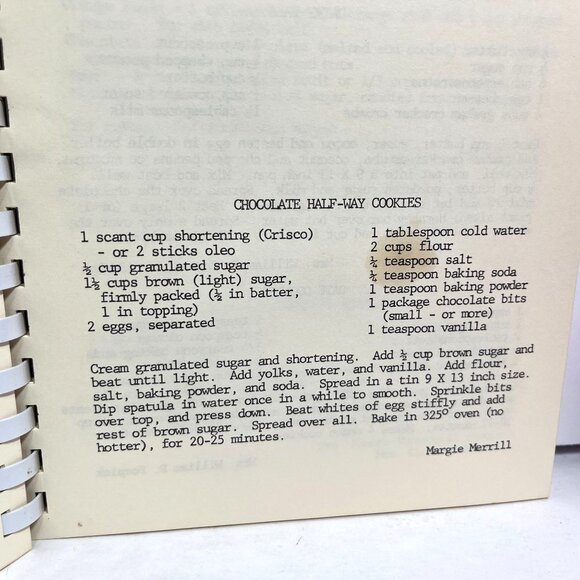 CHOCOLATE HALF-WAY COOKIES
1 scant cup shortening (Crisco)
- or 2 sticks oleo
½ cup granulated sugar
1½ cups brown (light) sugar,
firmly packed (½ in batter,
1 in topping)
2 eggs, separated
1 tablespoon cold water
2 cups flour
¼ teaspoon salt
¼ teaspoon baking soda
1 teaspoon baking powder
1 package chocolate bits
(small - or more)
1 teaspoon vanilla
Cream granulated sugar and shortening. Add ½ cup brown sugar and
beat until light. Add yolks, water, and vanilla. Add flour,
salt, baking powder, and soda. Spread in a tin 9 X 13 inch size.
Dip spatula in water once in a while to smooth. Sprinkle bits
over top, and press down. Beat whites of egg stiffly and add
rest of brown sugar. Spread over all. Bake in 325° oven (no
hotter), for 20-25 minutes.
Margie Merrill